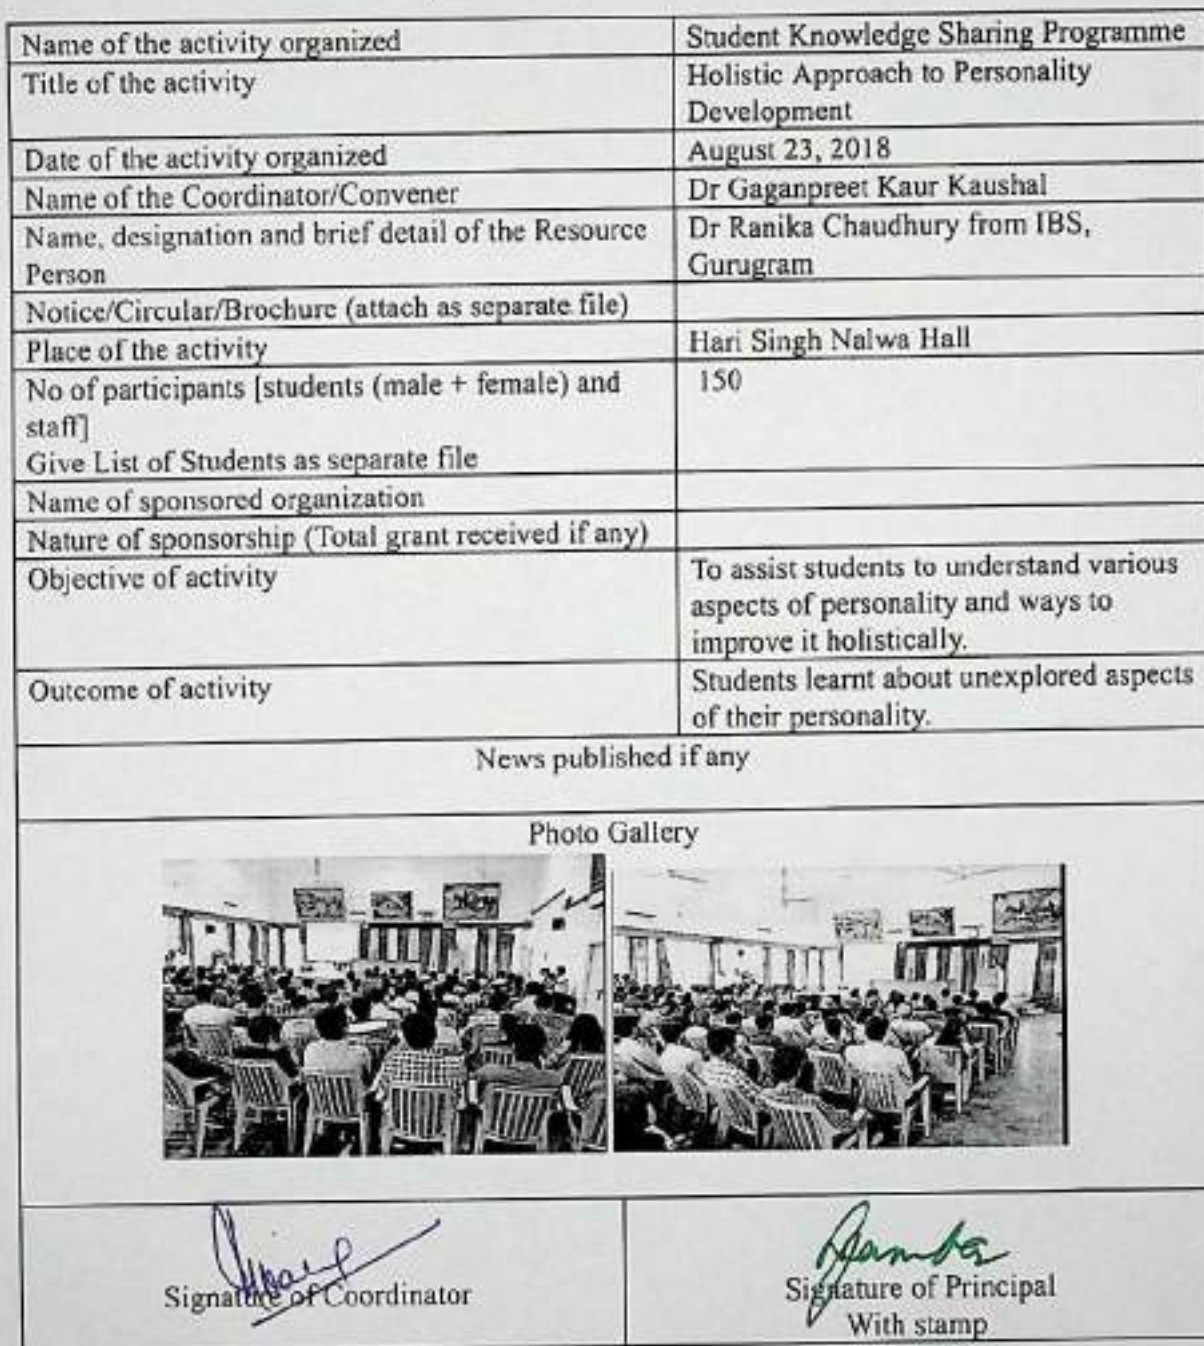 Name of the activity organized
Student Knowledge Sharing Programme
Title of the activity
Holistic Approach to Personality
Development
Date of the activity organized
August 23, 2018
Name of the Coordinator/Convener
Dr Gaganpreet Kaur Kaushal
Name, designation and brief detail of the Resource
Person
Dr Ranika Chaudhury from IBS,
Gurugram
Notice/Circular/Brochure (attach as separate file)
Place of the activity
Hari Singh Nalwa Hall
No of participants [students (male + female) and
staff]
Give List of Students as separate file
150
Name of sponsored organization
Nature of sponsorship (Total grant received if any)
Objective of activity
To assist students to understand various
aspects of personality and ways to
improve it holistically.
Outcome of activity
Students learnt about unexplored aspects
of their personality.
News published if any
Photo Gallery
Signature of Coordinator
Signature of Principal
With stamp